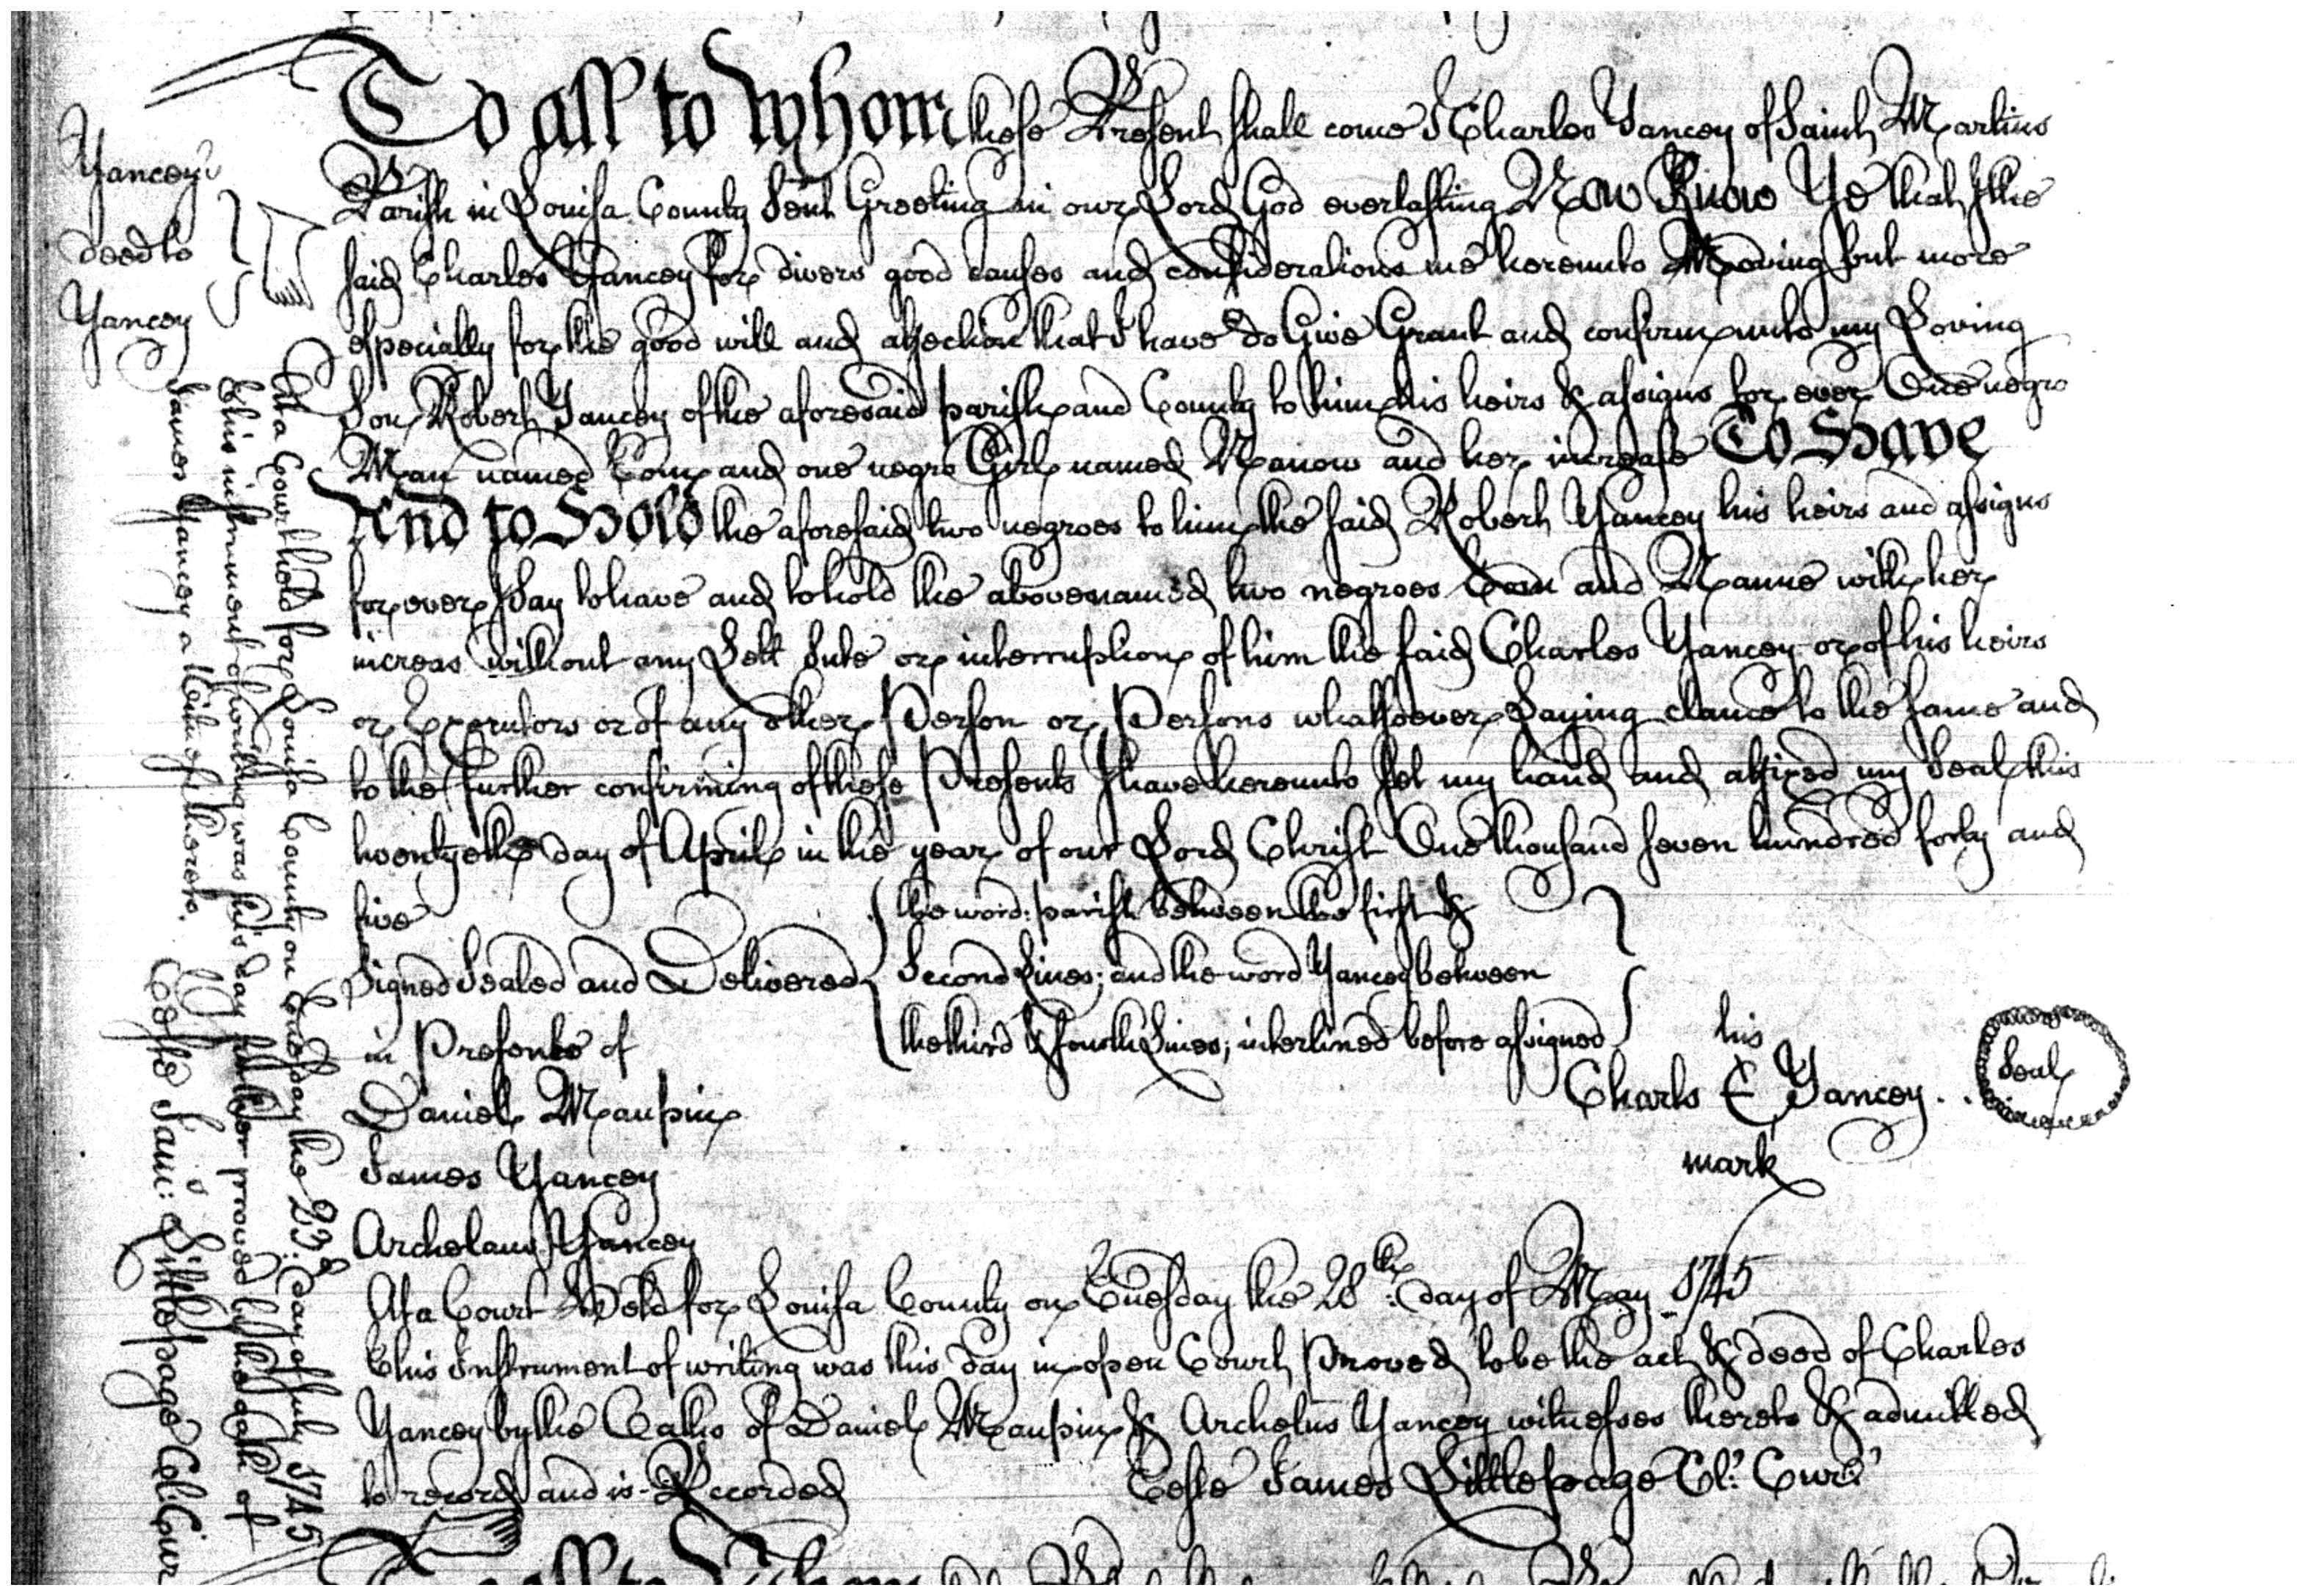 Yancey
deed to
Yancey
To all to Whom these Present shall come I Charles Yancey of Saint Martins
Parish in Louisa County Sent Greeting in our Lord God everlasting Now Know Ye that I the
said Charles Yancey for divers good causes and considerations me hereunto Moving but more
especially for the good will and affection that I have do Give Grant and confirm unto my Loving
Son Robert Yancey of the aforesaid parish and County to him his heirs & assigns for ever One negro
Man named Tom and one negro Girl named Nanow and her increase To Have
And to Hold the aforesaid two negroes to him the said Robert Yancey his heirs and assigns
for ever I say to have and to hold the above named two negroes Tom and Nanne with her
increas without any Lett Sute or interruption of him the said Charles Yancey or of his heirs
or Executors or of any other Person or Persons whatsoever Laying clame to the same and
to the further confirming of these Presents I have hereunto set my hand and affixed my Seal this
twentyeth day of April in the year of our Lord Christ One thousand seven hundred forty and
five
the word: parish between the first &
Signed Sealed and Delivered Second Lines; and the word Yancey between
in Presente of the third & fourth Lines; interlined before assigned
his
Charls C Yancey Seal
mark
Daniel Maupin
James Yancey
Archelaus Yancey
At a Court Held for Louisa County on Tuesday the 28th: day of May 1745
This Instrument of writing was this day in open Court Proved to be the act & deed of Charles
Yancey by the Oaths of Daniel Maupin & Archelus Yancey witnesses thereto & admitted
to record and is Recorded
Teste James Littlepage Cl: Cur:
At a Court held for Louisa County on Tuesday the 23d: day of July 1745
This instrument of writing was this day further proved by the oath of
James Yancey a Witness thereto.
Teste Jam: Littlepage Cl: Cur
To all to Whom